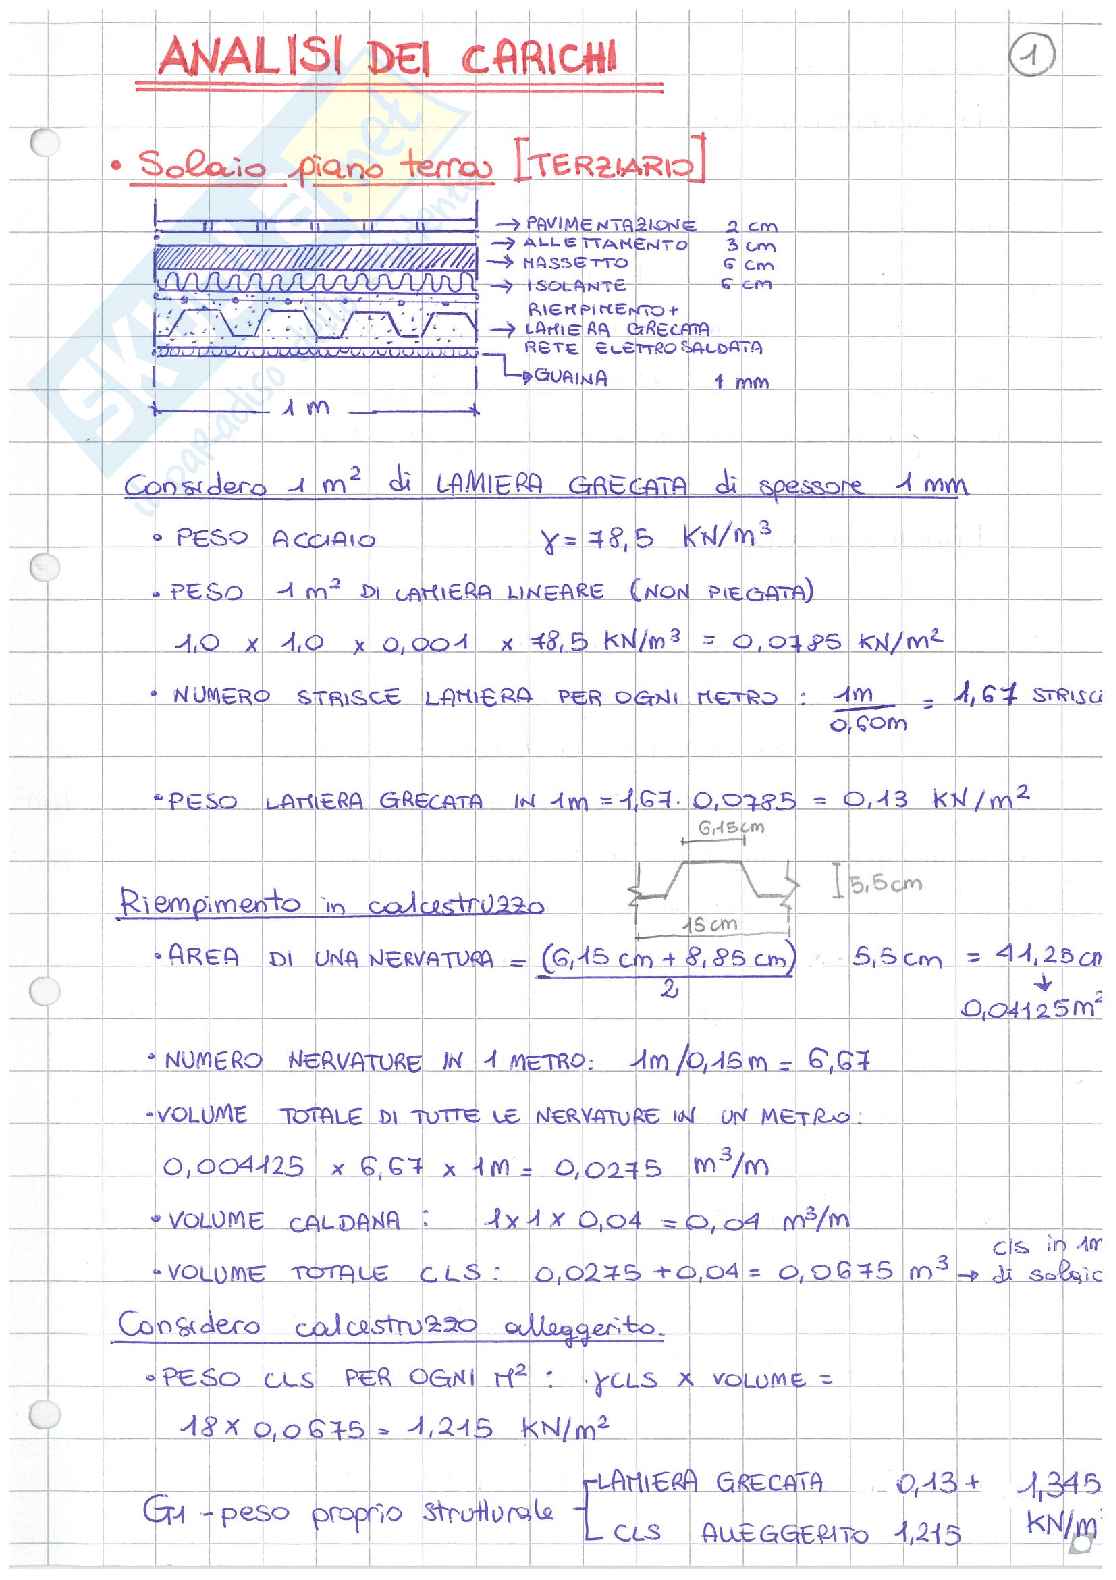 ANALISI DEI CARICHI
1
• Solaio piano terra [TERZIARIO]
→ PAVIMENTAZIONE 2 cm
→ ALLETTAMENTO 3 cm
→ MASSETTO 6 cm
→ ISOLANTE 6 cm
RIEMPIMENTO +
→ LAMIERA GRECATA
RETE ELETTROSALDATA
→ GUAINA 1 mm
1 m
Considero 1 m² di LAMIERA GRECATA di spessore 1 mm
• PESO ACCIAIO γ = 78,5 KN/m³
• PESO 1 m² DI LAMIERA LINEARE (NON PIEGATA)
1,0 x 1,0 x 0,001 x 78,5 KN/m³ = 0,0785 KN/m²
• NUMERO STRISCE LAMIERA PER OGNI METRO : 1m / 0,60m = 1,67 STRISCE
• PESO LAMIERA GRECATA IN 1m = 1,67 · 0,0785 = 0,13 KN/m²
6,15cm
5,5cm
15cm
Riempimento in calcestruzzo
• AREA DI UNA NERVATURA = (6,15 cm + 8,85 cm) / 2 5,5cm = 41,25 cm
↓
0,04125m²
• NUMERO NERVATURE IN 1 METRO: 1m/0,15m = 6,67
• VOLUME TOTALE DI TUTTE LE NERVATURE IN UN METRO:
0,004125 x 6,67 x 1m = 0,0275 m³/m
• VOLUME CALDANA : 1x1x 0,04 = 0,04 m³/m
• VOLUME TOTALE CLS : 0,0275 + 0,04 = 0,0675 m³ → cls in 1m
di solaio
Considero calcestruzzo alleggerito.
• PESO CLS PER OGNI M² : γCLS x VOLUME =
18 x 0,0675 = 1,215 KN/m²
G1 - peso proprio strutturale
LAMIERA GRECATA 0,13 + 1,345
CLS ALLEGGERITO 1,215 KN/m